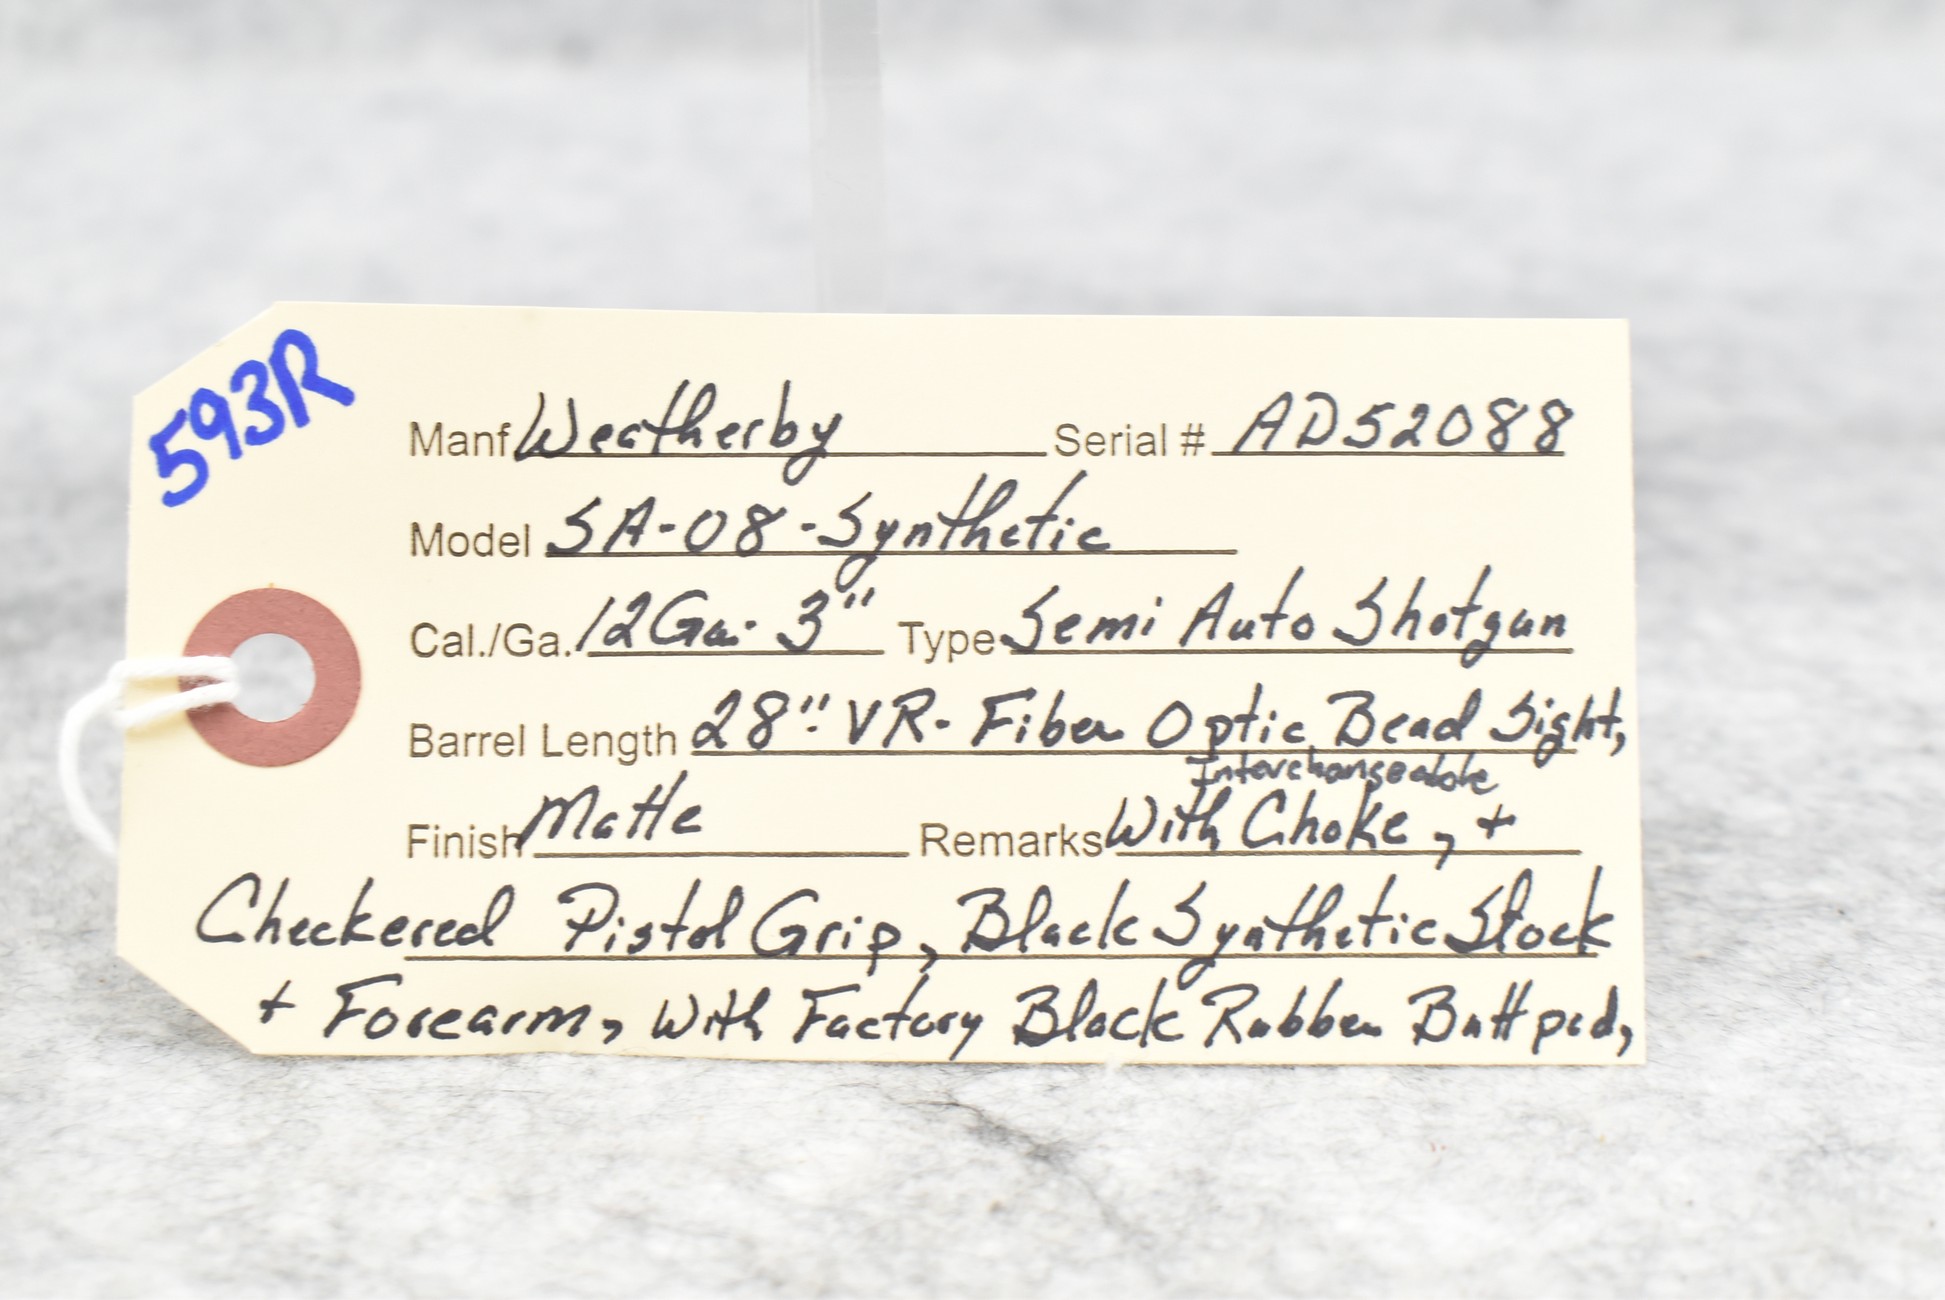 593R
Manf Weatherby Serial # AD52088
Model SA-08-Synthetic
Cal./Ga. 12Ga. 3" Type Semi Auto Shotgun
Barrel Length 28" VR- Fiber Optic Bead Sight,
Interchangeable
Finish Matte Remarks With Choke, +
Checkered Pistol Grip, Black Synthetic Stock
+ Forearm, With Factory Black Rubber Buttpad,